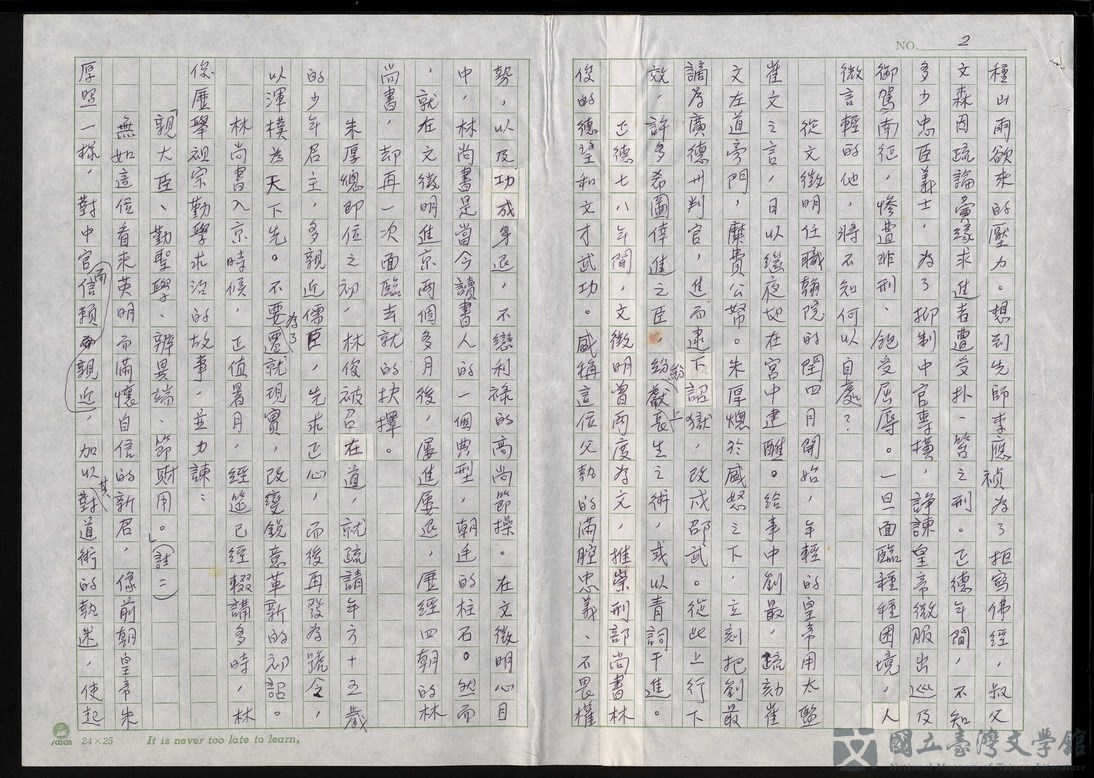 NO. 2
種山雨欲來的壓力。想到先師李應禎為了拒寫佛經，叔父
文森因疏論夤緣求進者遭受扑、笞之刑。正德年間，不知
多少忠臣義士，為了抑制中官專橫，諍諫皇帝微服出巡及
御駕南征，慘遭非刑、飽受屈辱。一旦面臨種種困境，人
微言輕的他，將不知何以自處？
從文徵明任職翰院的閏四月開始，年輕的皇帝用太監
崔文之言，日以繼夜地在宮中建醮。給事中劉最，疏劾崔
文左道旁門，糜費公帑。朱厚熜於盛怒之下，立刻把劉最
謫為廣德州判官，進而逮下詔獄，改戍邵武。從此上行下
效，許多希圖倖進之臣，紛紛獻上長生之術，或以青詞干進。
正德七八年間，文徵明曾兩度為文，推崇刑部尚書林
俊的德望和文才武功。盛稱這位父執的滿腔忠義、不畏權
勢，以及功成身退，不戀利祿的高尚節操。在文徵明心目
中，林尚書是當今讀書人的一個典型，朝廷的柱石。然而
，就在文徵明進京兩個多月後，屢進屢退，歷經四朝的林
尚書，却再一次面臨去就的抉擇。
朱厚熜即位之初，林俊被召在道，就疏請年方十五歲
的少年君主，多親近儒臣，先求正心，而後再發為號令，
以渾樸為天下先。不要為了遷就現實，改變銳意革新的初詔。
林尚書入京時候，正值暑月，經筵已經輟講多時，林
俊歷舉祖宗勤學求治的故事，並力諫：
「親大臣、勤聖學、辨異端、節財用。」（註二）
無如這位看來英明而滿懷自信的新君，像前朝皇帝朱
厚照一樣，對中官親近而信賴，加以其對道術的執迷，使起
SABON 24×25 It is never too late to learn,
國立臺灣文學館
National Museum of Taiwan Literature